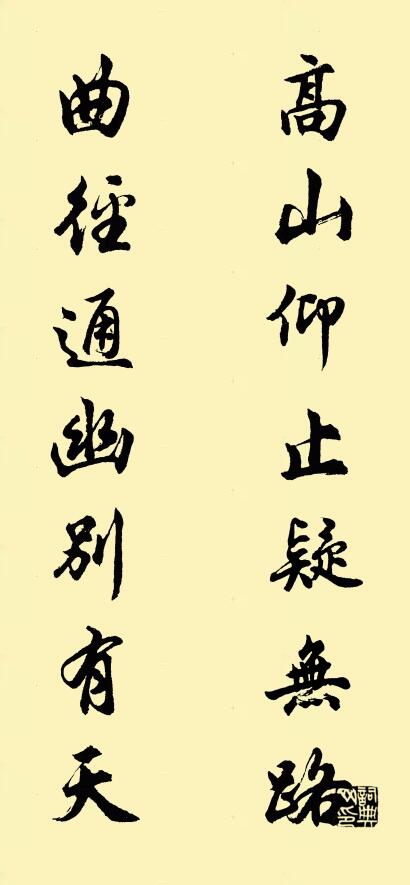 高山仰止疑無路
曲徑通幽別有天